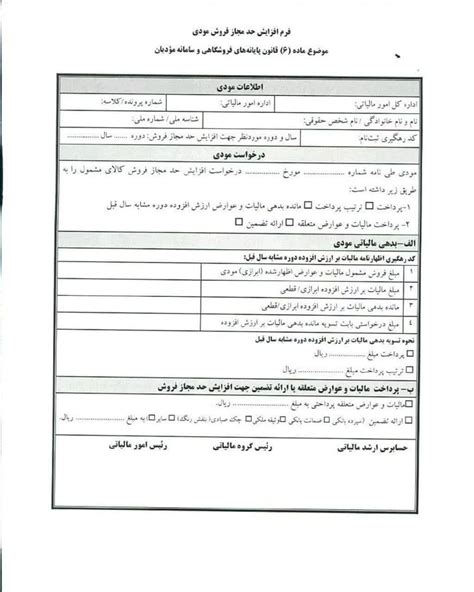 فرم افزایش حد مجاز فروش مودی
موضوع ماده (۶) قانون پایانه‌های فروشگاهی و سامانه مؤدیان
اطلاعات مودی
اداره کل امور مالیاتی: اداره امور مالیاتی: شماره پرونده/کلاسه:
نام و نام خانوادگی / نام شخص حقوقی: شناسه ملی / شماره ملی:
کد رهگیری ثبت‌نام: سال و دوره موردنظر جهت افزایش حد مجاز فروش: دوره ........ سال ........
درخواست مودی
مودی طی نامه شماره .................... مورخ .................... درخواست افزایش حد مجاز فروش کالای مشمول را به
طریق زیر داشته است:
۱-پرداخت □ ترتیب پرداخت □ مانده بدهی مالیات و عوارض ارزش افزوده دوره مشابه سال قبل
۲- پرداخت مالیات و عوارض متعلقه □ ارائه تضمین □
الف-بدهی مالیاتی مودی
کد رهگیری اظهارنامه مالیات بر ارزش افزوده دوره مشابه سال قبل:
۱ مبلغ فروش مشمول مالیات و عوارض اظهارشده (ابرازی) مودی
۲ مبلغ مالیات بر ارزش افزوده ابرازی/قطعی
۳ مانده بدهی مالیات بر ارزش افزوده ابرازی/قطعی
۴ مبلغ درخواستی بابت تسویه مالیات بر ارزش افزوده
نحوه تسویه بدهی مالیات بر ارزش افزوده دوره مشابه سال قبل:
□ پرداخت مبلغ .................... ریال.
□ ترتیب پرداخت .................... ریال.
ب- پرداخت مالیات و عوارض متعلقه یا ارائه تضمین جهت افزایش حد مجاز فروش
□ مالیات و عوارض متعلقه پرداختی به مبلغ .................... ریال.
□ ارائه تضمین (سپرده بانکی □ ضمانت بانکی □ وثیقه ملکی □ چک صیادی( بنفش رنگ)□ سایر□) به مبلغ .......... ریال.
حسابرس ارشد مالیاتی رئیس گروه مالیاتی رئیس امور مالیاتی